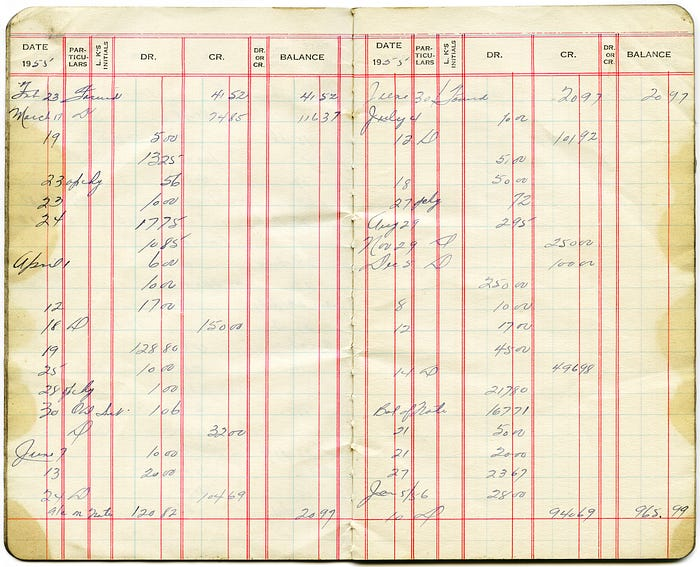 DATE PAR-TICU-LARS L.K'S INITIALS DR. CR. DR. OR CR. BALANCE
1955
Feb 23 Forward 41 52 41 52
March 17 D 74 85 116 37
19 5 00
13 25
23 chg 56
23 10 00
24 17 75
10 85
April 1 6 00
10 00
12 17 00
18 D 150 00
19 128 80
25 10 00
28 chg 1 00
30 1 06
D 32 00
June 7 10 00
13 20 00
24 D 104 69
a/c on Note 120 82 20 97
DATE PAR-TICU-LARS L.K'S INITIALS DR. CR. DR. OR CR. BALANCE
1955
June 30 Forward 20 97 20 97
July 4 10 00
12 D 101 92
5 00
18 50 00
27 chg 72
Aug 29 2 95
Nov 29 D 250 00
Dec 5 D 100 00
250 00
8 10 00
12 17 00
45 00
14 D 496 98
217 80
Bal of Note 167 71
21 50 00
21 20 00
27 23 67
Jan 5/56 28 00
10 D 940 69 965.99